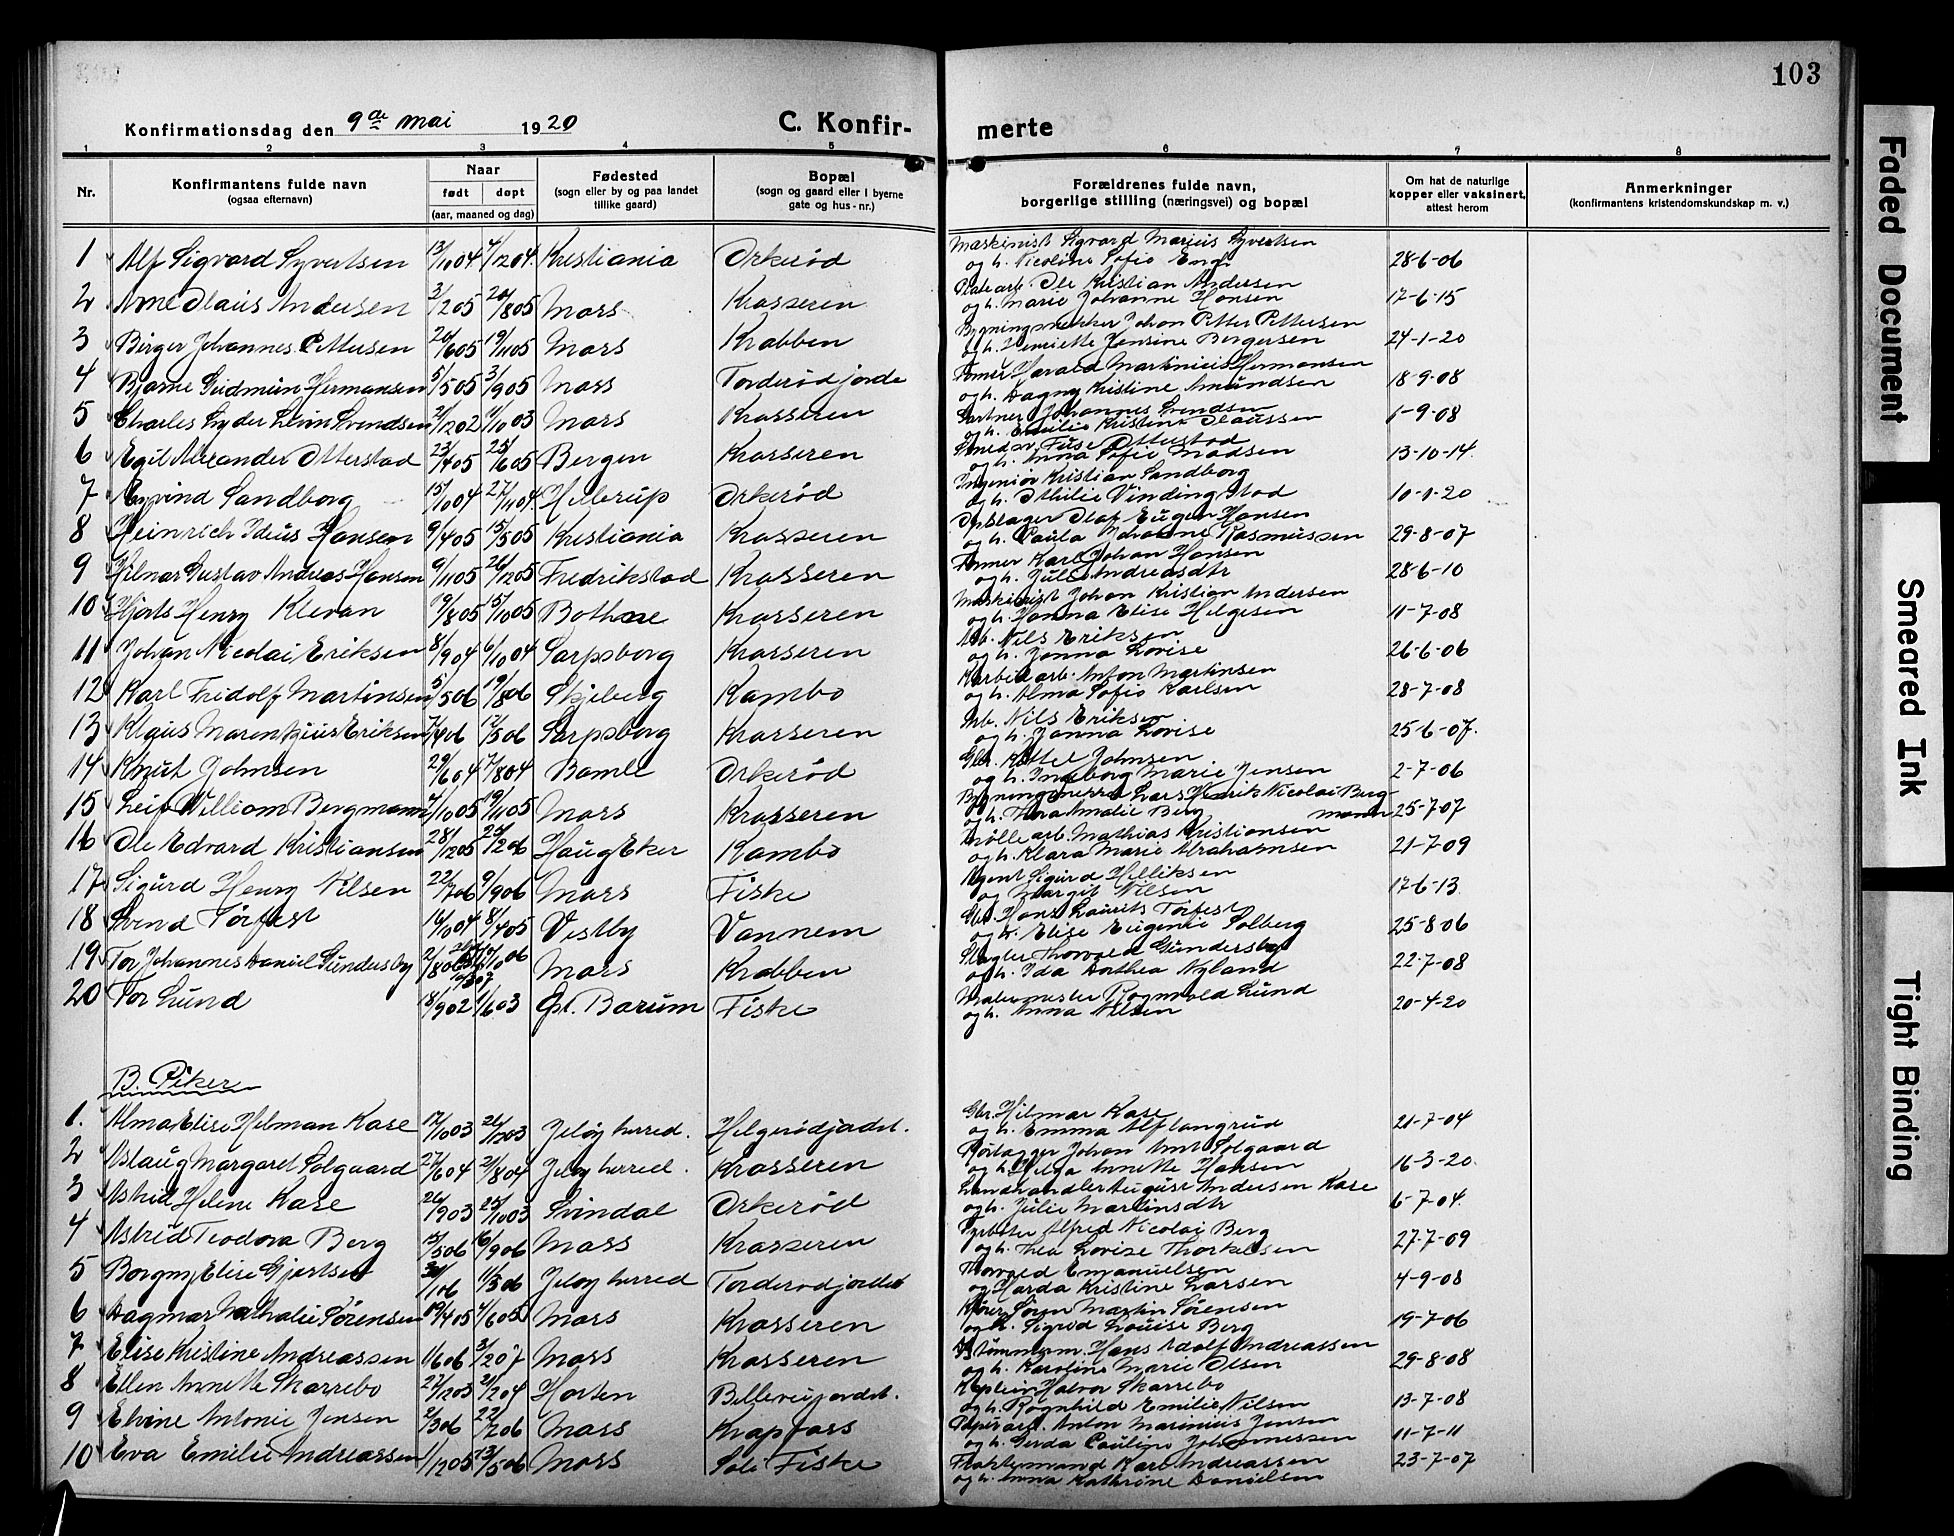 103
Konfirmationsdag den 9de mai 1920 C. Konfir- merte
1 2 3 4 5 6 7 8
Nr. Konfirmantens fulde navn (ogsaa efternavn) Naar født døpt (aar, maaned og dag) Fødested (sogn eller by og paa landet tillike gaard) Bopæl (sogn og gaard eller i byerne gate og hus-nr.) Forældrenes fulde navn, borgerlige stilling (næringsvei) og bopæl Om hat de naturlige kopper eller vaksinert, attest herom Anmerkninger (konfirmantens kristendomskundskap m. v.)
1 Alf Sigvard Syvertsen 13/10 04 4/12 04 Kristiania Orkerød Maskinist Sigvard Marius Syvertsen
og h. Nicoline Sofie Engh 28-6-06
2 Arne Olaus Andersen 3/2 05 20/8 05 Moss Krosseren Platearb. Ole Kristian Andersen
og h. Marie Johanne Hansen 17-6-15
3 Birger Johannes Pettersen 20/6 05 19/11 05 Moss Krabben Bygningssnekker Johan Petter Pettersen
og h. Henriette Jensine Bergersen 24-1-20
4 Bjarne Gudmun Hermansen 5/5 05 3/9 05 Moss Torderødjorde Former Harald Martinius Hermansen
og h. Dagny Kristine Amundsen 18-9-08
5 Charles Lyder Svendsen 21/12 02 11/10 03 Moss Krosseren Gartner Johannes Svendsen
og h. Emilie Kristine Olaussen 1-9-08
6 Egil Alexander Otterstad 23/4 05 25/6 05 Bergen Krosseren Smed Otterstad
og h. Anna Sofie Madsen 13-10-14
7 Eyvind Sandborg 15/10 04 27/11 04 Hellerup Orkerød Ingeniør Kristian Sandborg
og h. Othilie Vinding Stod 10-1-20
8 Heinrich Idius Hansen 9/4 05 15/5 05 Kristiania Krosseren Opslager Olaf Eugen Hansen
og h. Paula Johanne Rasmussen 29-8-07
9 Hilmar Gustav Andreas Hansen 9/11 05 26/12 05 Fredrikstad Krosseren Former Karl Johan Hansen
og h. Julie Andreasdtr 28-6-10
10 Hjorts Henry Klevan 19/8 05 15/10 05 Bothne Krosseren Maskinist Johan Kristian Andersen
og h. Hanna Elise Helgesen 11-7-08
11 Johan Nicolai Eriksen 8/9 04 6/10 04 Sarpsborg Krosseren Arb. Nils Eriksen
og h. Janna Lovise 26-6-06
12 Karl Fridolf Martinsen 5/5 06 19/8 06 Skjeberg Kambo Karbidarb. Anton Martinsen
og h. Alma Sofie Karlsen 28-7-08
13 Klaus Eriksen 7/4 06 17/5 06 Sarpsborg Krosseren Arb. Nils Eriksen
og h. Janna Lovise 25-6-07.
14 Knut Johnsen 29/6 04 7/8 04 Bamle Orkerød Gbr. Kittel Johnsen
og h. Ingeborg Marie Jensen 2-7-06
15 Leif William Bergmann 7/10 05 19/11 05 Moss Krosseren Lars Henrik Nicolai Berg-
og h. Thora Amalie Berg mann 25-7-07
16 Ole Edvard Kristiansen 28/12 05 25/2 06 Haug Eker Kambo Mølle arb. Mathias Kristiansen
og h. Klara Marie Abrahamsen 21-7-09
17 Sigurd Henry Nilsen 22/7 06 9/9 06 Moss Fiske Agent Sigurd Helliksen
og Margit Nilsen 17-6-13
18 Svend Torfest 14/10 04 8/4 05 Vestby Vannem Gbr. Hans Laurits Torfest
og h. Elise Eugenie Solberg 25-8-06
19 Tor Johannes Daniel Gundersby 2/8 06 Moss Krabben Slagter Thorvald Gundersby
og h. Ida Dorthea Nyland 22-7-08
20 Tor Lund 18/9 02 1/6 03 Ø. Bærum Fiske Malermester Rognvald Lund
og h. Anna Nilsen 20-4-20
B. Piker
1. Alma Elise Hilman Kase 17/10 03 26/12 03 Jeløy herred. Helgerødjordet. Gbr. Hilmar Kase
og h. Emma Alflangrud 21-7-04
2 Aslaug Margaret Solgaard 27/6 04 21/8 04 Jeløy herred. Krosseren Johan Solgaard
og h. Helga Annette Hansen 16-3-20.
3 Astrid Helene Kase 26/9 03 25/10 03 Svindal Orkerød Landhandler August Andersen Kase
og h. Julie Martinsdtr 6-7-04.
4 Astrid Teodora Berg 15/5 06 16/9 06 Moss Krosseren Fyrbøter Alfred Nicolai Berg
og h. Thea Lovise Thorkelsen 27-7-09
5 Borgny Elise Gjertsen 30/1 06 11/3 06 Jeløy herred Torderødjordet Thorvald Emanuelsen
og Harda Kristine Larsen 4-9-08
6 Dagmar Nathalie Sørensen 19/4 05 4/6 05 Moss Krosseren Kører Søren Martin Sørensen
og h. Sigrid Louise Berg 19-7-06
7 Elise Kristine Andreassen 1/6 06 3/2 07 Moss Krosseren Hans Adolf Andreassen
og h. Karoline Marie Olsen 29-8-08
8 Ellen Annette Skarrebo 27/12 03 21/2 04 Horten Billeveijordet. Kaptein Halvor Skarrebo
og h. Rognhild Emilie Nilsen 13-7-08
9 Elvine Antonie Jensen 2/3 06 22/7 06 Moss Krapfoss Papirarb. Anton Marinius Jensen
og h. Gerda Pauline Johannessen 11-7-11
10 Eva Emilie Andreassen 1/12 05 13/5 06 Moss Fiske Fraktemand Karl Andreassen
og h. Anna Kathrine Danielsen 23-7-07
Faded Document
Smeared Ink
Tight Binding